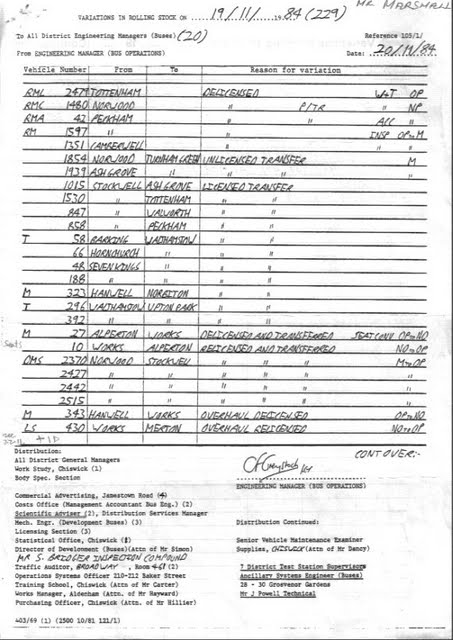 MR MARSHALL
VARIATIONS IN ROLLING STOCK ON 19/11/ 1984 (229)
To All District Engineering Managers (Buses) (20) Reference 105/1/
From ENGINEERING MANAGER (BUS OPERATIONS) Date: 20/11/84
Vehicle Number From To Reason for variation
RML 2479 TOTTENHAM DELICENSED W+T OP
RMC 1480 NORWOOD " P/TR " NP
RMA 42 PECKHAM " " ACC "
RM 1597 " INSP OP to M
1351 CAMBERWELL " " "
1854 NORWOOD TURNHAM GREEN UNLICENSED TRANSFER M
1939 ASH GROVE " " " "
1015 STOCKWELL ASH GROVE LICENSED TRANSFER
1530 " TOTTENHAM " "
847 " WALWORTH " "
858 " PECKHAM " "
T 58 BARKING WALTHAMSTOW " "
66 HORNCHURCH " " "
48 SEVEN KINGS " " "
188 " " " "
M 323 HANWELL NORBITON " "
T 296 WALTHAMSTOW UPTON PARK " "
392 " " " "
M 27 ALPERTON WORKS DELICENSED AND TRANSFERRED SEAT CONV OP to NO
Seats 10 WORKS ALPERTON RELICENSED AND TRANSFERRED NO to OP
DMS 2370 NORWOOD STOCKWELL " " " M to OP
2427 " " " " " "
2442 " " " " " "
2515 " " " " " "
M 343 HANWELL WORKS OVERHAUL DELICENSED OP to NO
LS 430 WORKS MERTON OVERHAUL RELICENSED NO to OP
CONT OVER:-
Distribution:
All District General Managers
Work Study, Chiswick (1)
Body Spec. Section
ENGINEERING MANAGER (BUS OPERATIONS)
Commercial Advertising, Jamestown Road
Costs Office (Management Accountant Bus Eng.) (2)
Scientific Adviser (2), Distribution Services Manager
Mech. Engr. (Development Buses) (3) Distribution Continued:
Licensing Office (3)
Statistical Office, Chiswick Senior Vehicle Maintenance Examiner
Director of Development (Buses)(Attn of Mr Simon) Supplies, CHISWICK (Attn of Mr Dancy)
MR S. BRIDGER INSPECTION COMPOUND
Traffic Auditor, BROADWAY, Room 7 District Test Station Supervisors
Operations Systems Officer 210-212 Baker Street Ancillary Systems Engineer (Buses)
Training School, Chiswick (Attn of Mr Carter) 28 - 30 Grosvenor Gardens
Works Manager, Aldenham (Attn of Mr Hayward) Mr J Powell Technical
Purchasing Officer, Chiswick (Attn of Mr Hillier)
403/69 (1) (2500 10/81 121/1)